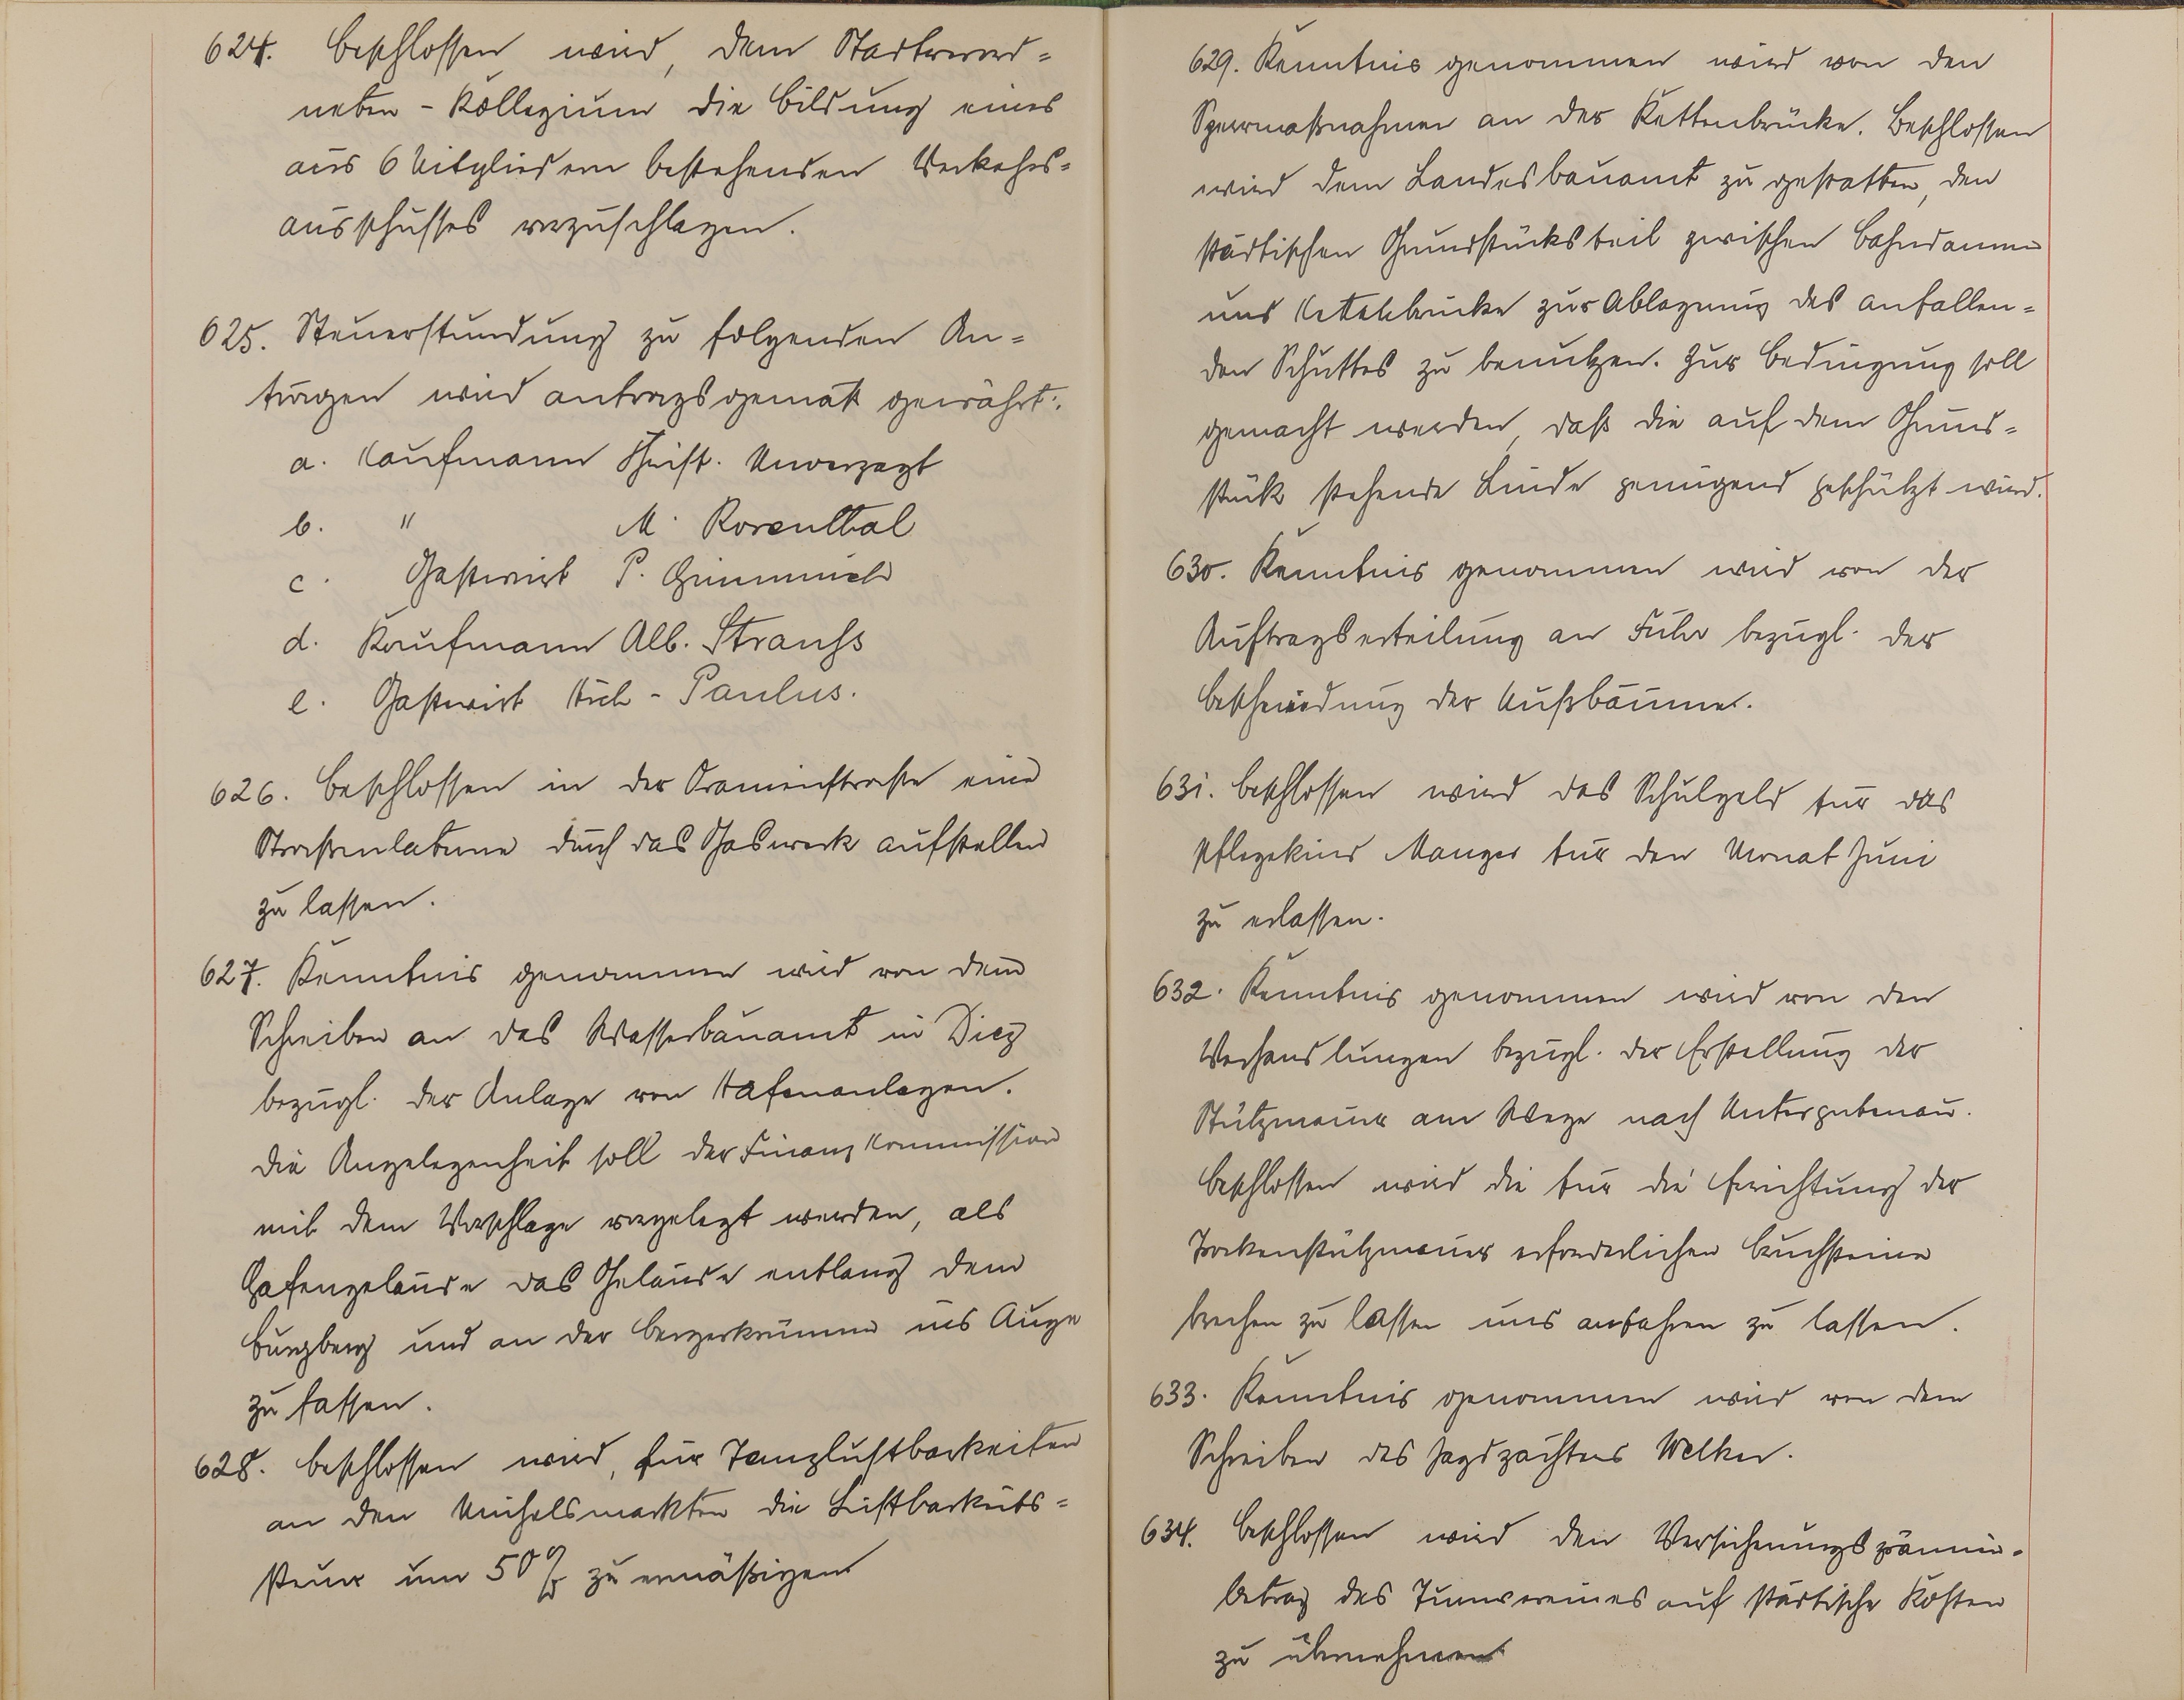 624. Beschlossen wird, dem Stadtverord=
neten-Kollegium die Bildung eines
aus 6 Mitgliedern bestehenden Verkehrs=
ausschusses vorzuschlagen.
625. Steuerstundung zu folgenden An=
trägen wird antragsgemäß gewährt:
a. Kaufmann Christ. Unverzagt
b. " M. Rosenthal
c. Gastwirt P.
d. Kaufmann Alb. Strauss
e. Gastwirt Paulus.
626. Beschlossen in der Oranienstraße eine
Straßenlaterne durch das Gaswerk aufstellen
zu lassen.
627. Kenntnis genommen wird von dem
Schreiben an das Wasserbauamt in Diez
bezügl. der Anlage von Hafenanlagen.
Die Angelegenheit soll der Finanzkommission
mit dem Vorschlage vorgelegt werden, als
Hafengelände das Gelände entlang dem
Burgberg und an der Bergerkrümme ins Auge
zu fassen.
628. Beschlossen wird, für Tanzlustbarkeiten
an den Michelsmarkten die Lustbarkeits=
steuer um 50 % zu ermäßigen
629. Kenntnis genommen wird von den
Sperrmaßnahmen an der Kettenbrücke. Beschlossen
wird dem Landesbauamt zu gestatten, den
städtischen Grundstücksteil zwischen Bahndamm
und Kettenbrücke zur Ablagerung des anfallen=
den Schuttes zu benutzen. Zur Bedingung soll
gemacht werden, daß die auf dem Grund=
stück stehende Linde genügend geschützt wird.
630. Kenntnis genommen wird von der
Auftragserteilung an Führ bezügl. der
Beschneidung der Nußbäume.
631. Beschlossen wird das Schulgeld für das
Pflegekind Manger für den Monat Juni
zu erlassen.
632. Kenntnis genommen wird von den
Verhandlungen bezügl. der Erstellung der
Stützmauer am Wege nach Untergutenau.
Beschlossen wird die für die Errichtung der
Trockenstützmauer erforderlichen Bruchsteine
brechen zu lassen und anfahren zu lassen.
633. Kenntnis genommen wird von dem
Schreiben des Jagdpächters Welker.
634. Beschlossen wird den Versicherungsprämien-
betrag des Turnvereines auf städtische Kosten
zu übernehmen